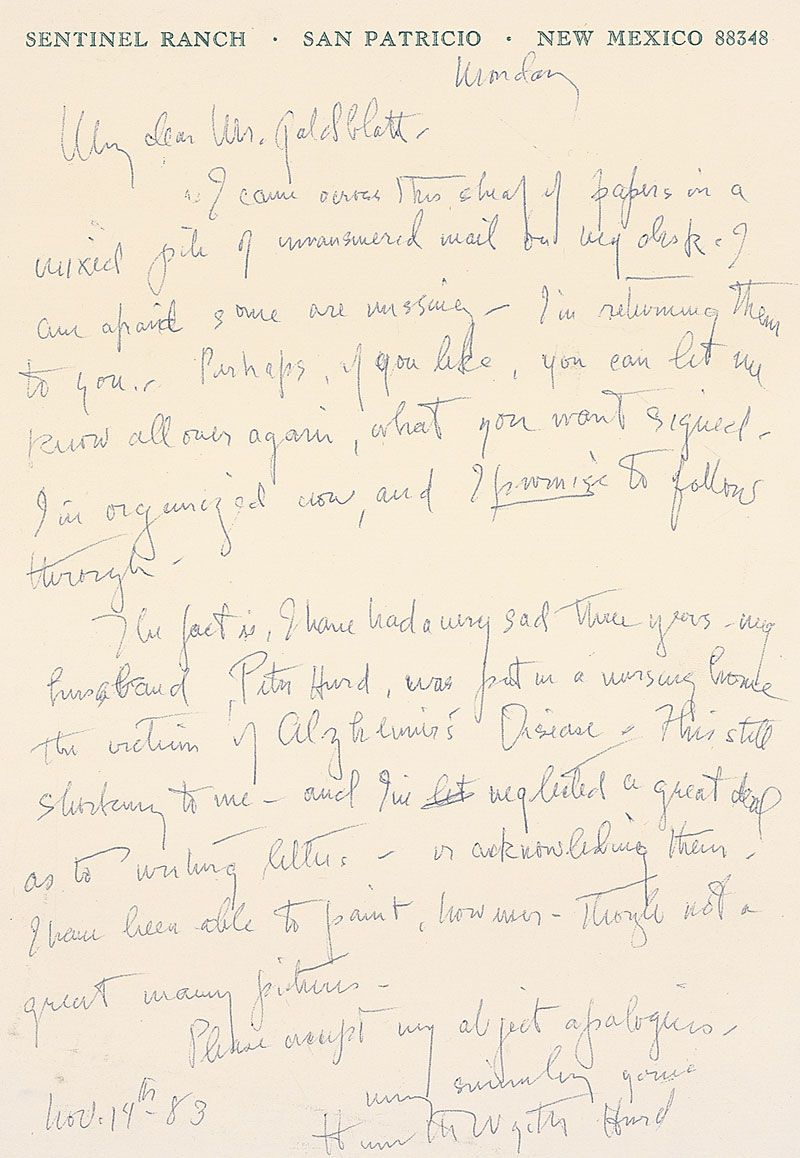 SENTINEL RANCH · SAN PATRICIO · NEW MEXICO 88348
Monday
My dear Mr. Goldblatt -
I came across this sheaf of papers in a
mixed pile of unanswered mail on my desk. I
am afraid some are missing - I'm returning them
to you. - Perhaps, if you like, you can let me
know all over again, what you want signed -
I'm organized now, and I promise to follow
through -
The fact is, I have had a very sad three years - my
husband, Peter Hurd, was put in a nursing home
the victim of Alzheimir's Disease - This is still
shocking to me - and I've let neglected a great deal
as to writing letters - or acknowledging them -
I have been able to paint, however - though not a
great many pictures -
Please accept my abject apologies -
very sincerely yours
Nov. 14th - 83
Henriette Wyeth Hurd